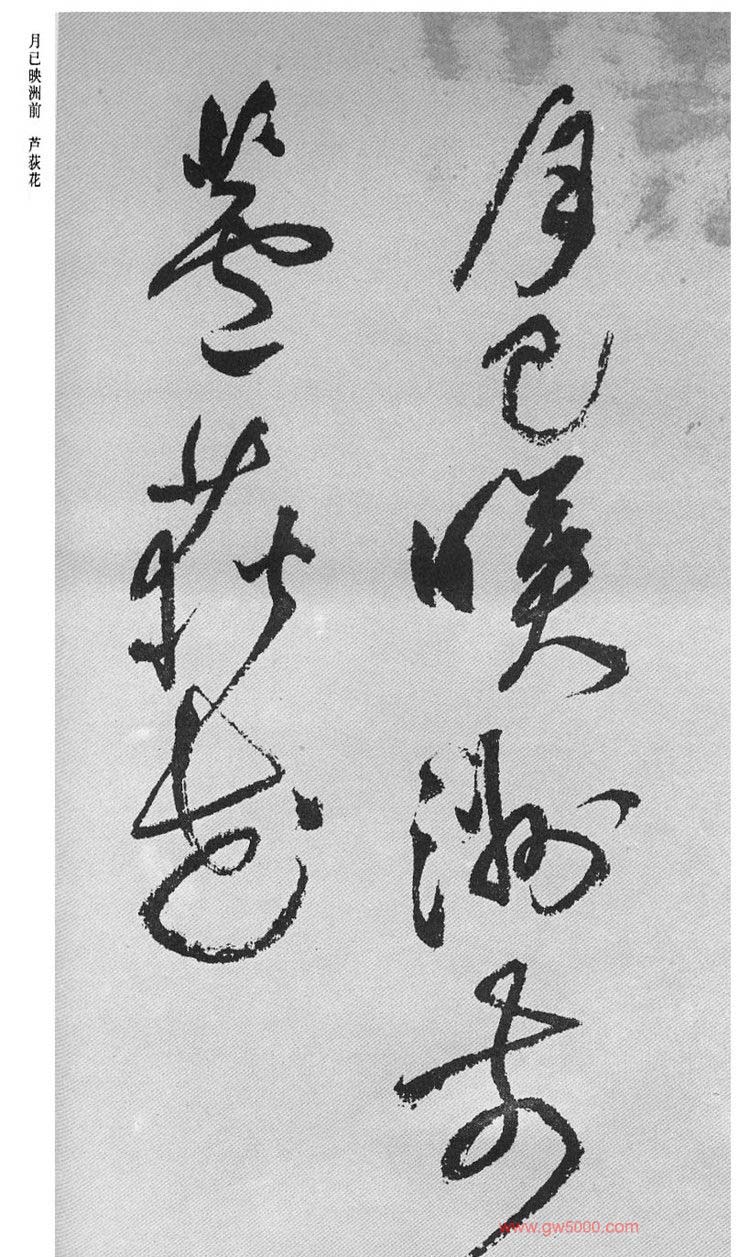 月已映洲前
芦荻花
月已映洲前 芦荻花
www.gw5000.com